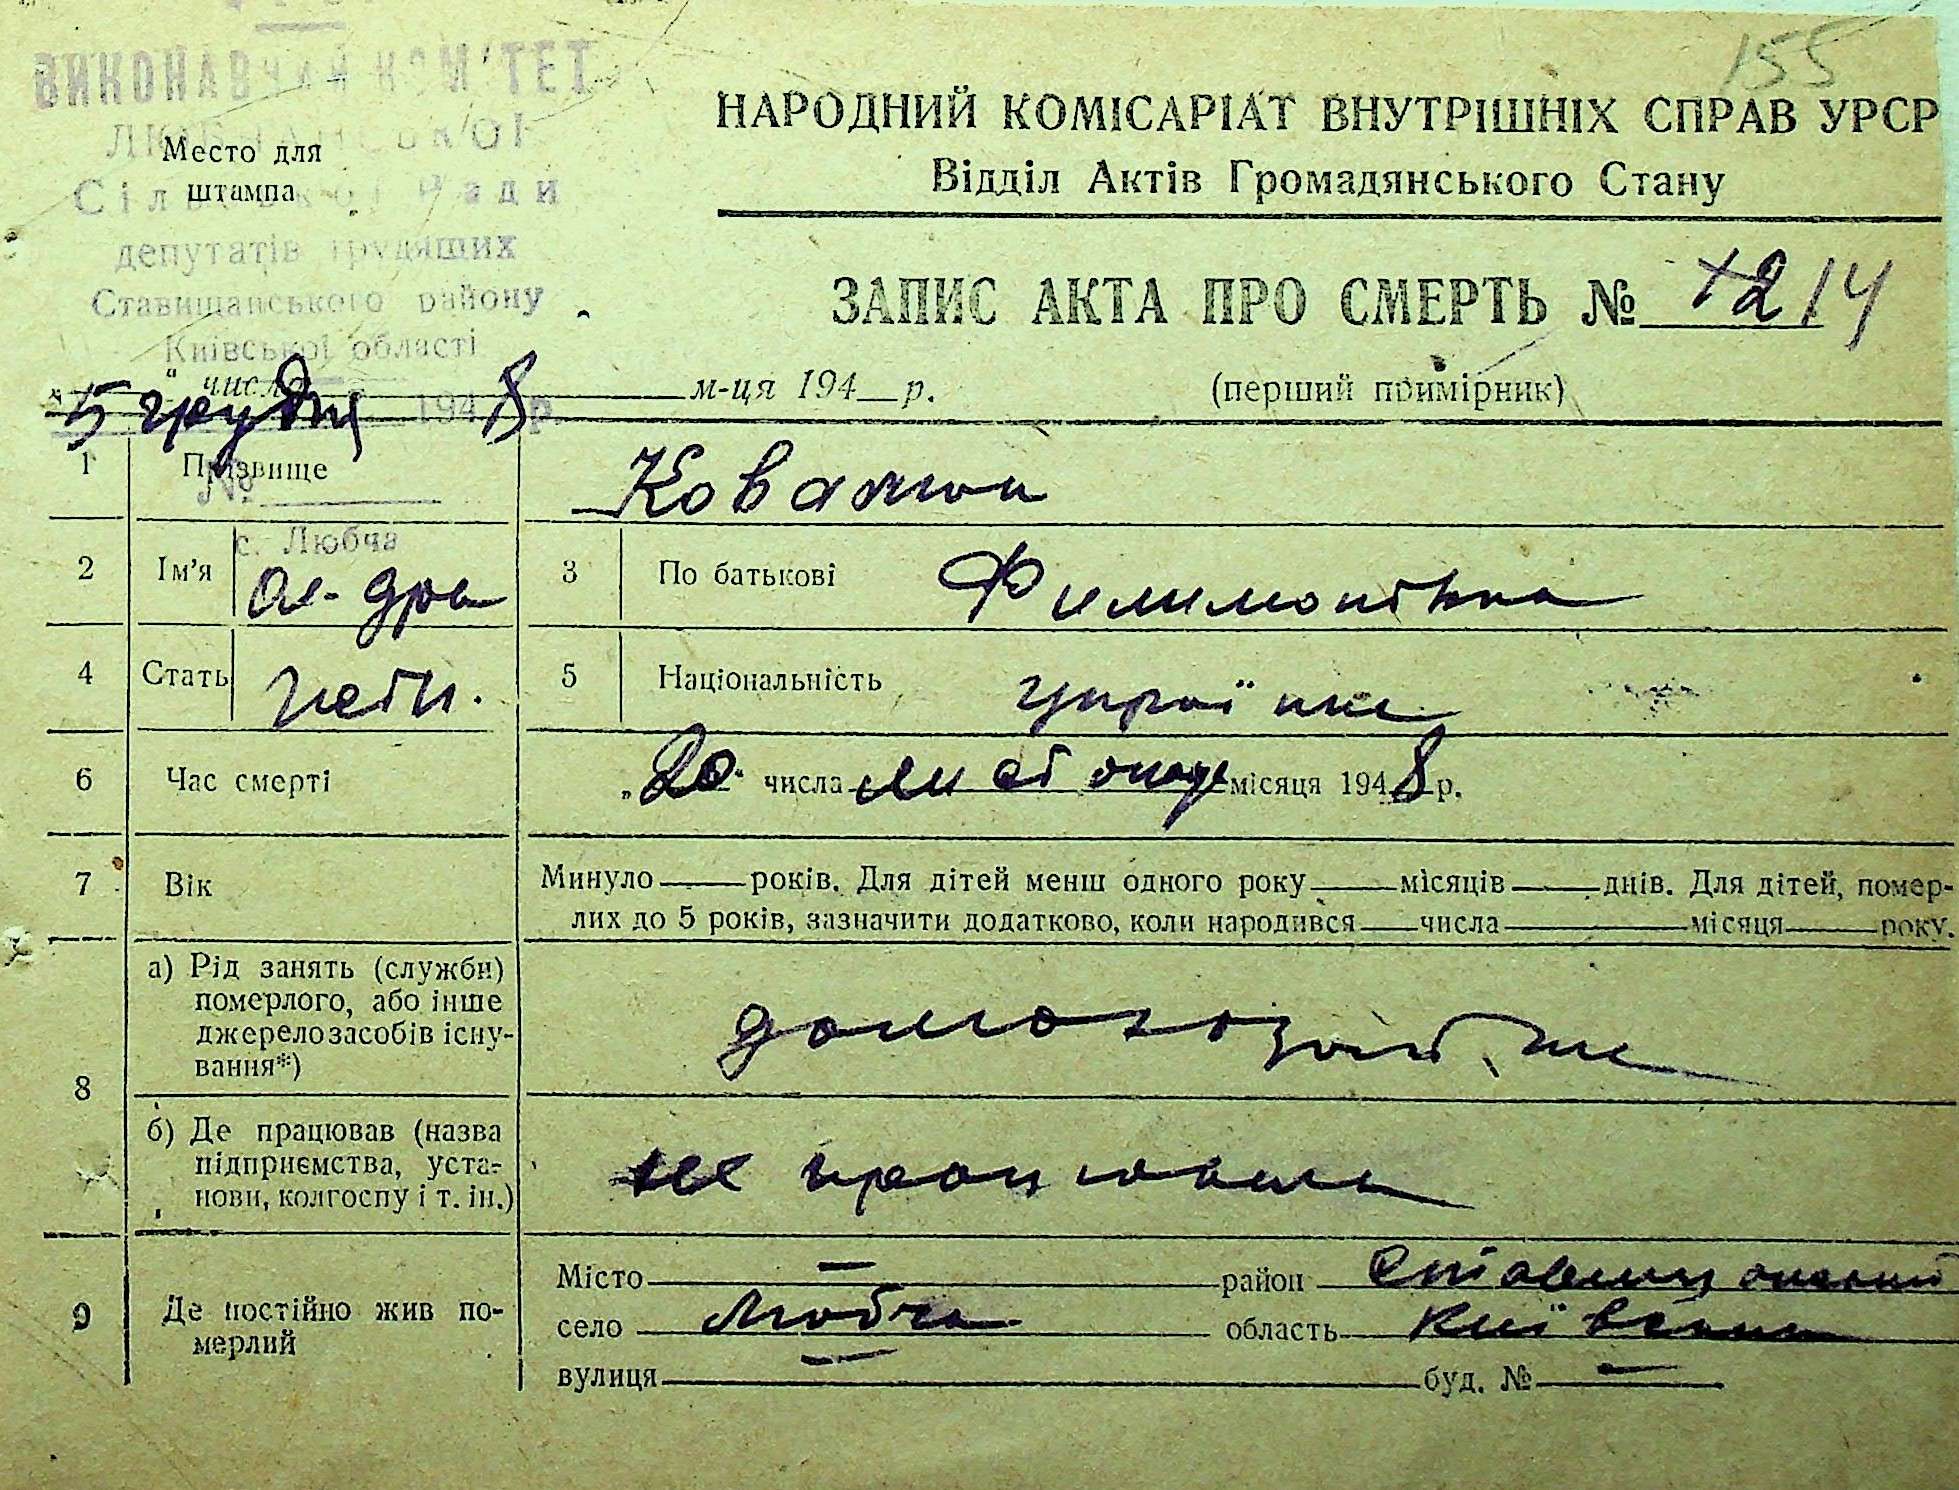 155
ВИКОНАВЧИЙ КОМІТЕТ
Сільської Ради
депутатів трудящих
Ставищанського району
Київської області
5 грудня 1948 р.
№
с. Любча
Место для
штампа
НАРОДНИЙ КОМІСАРІАТ ВНУТРІШНІХ СПРАВ УРСР
Відділ Актів Громадянського Стану
ЗАПИС АКТА ПРО СМЕРТЬ № 14
„ “ числа м-ця 194 р.
(перший примірник)
1 Прізвище Ковалюк
2 Ім'я Ол-дра 3 По батькові Филимонівна
4 Стать жетн. 5 Національність українка
6 Час смерті „20“ числа листопада місяця 1948 р.
7 Вік Минуло років. Для дітей менш одного року місяців днів. Для дітей, помер-
лих до 5 років, зазначити додатково, коли народився числа місяця року.
8 а) Рід занять (служби)
померлого, або інше
джерело засобів існу-
вання*)
домогозяйка
б) Де працював (назва
підприємства, уста-
нови, колгоспу і т. ін.)
не працювала
9 Де постійно жив по-
мерлий
Місто — район Ставищанський
село Любча область Київська
вулиця — буд. № —